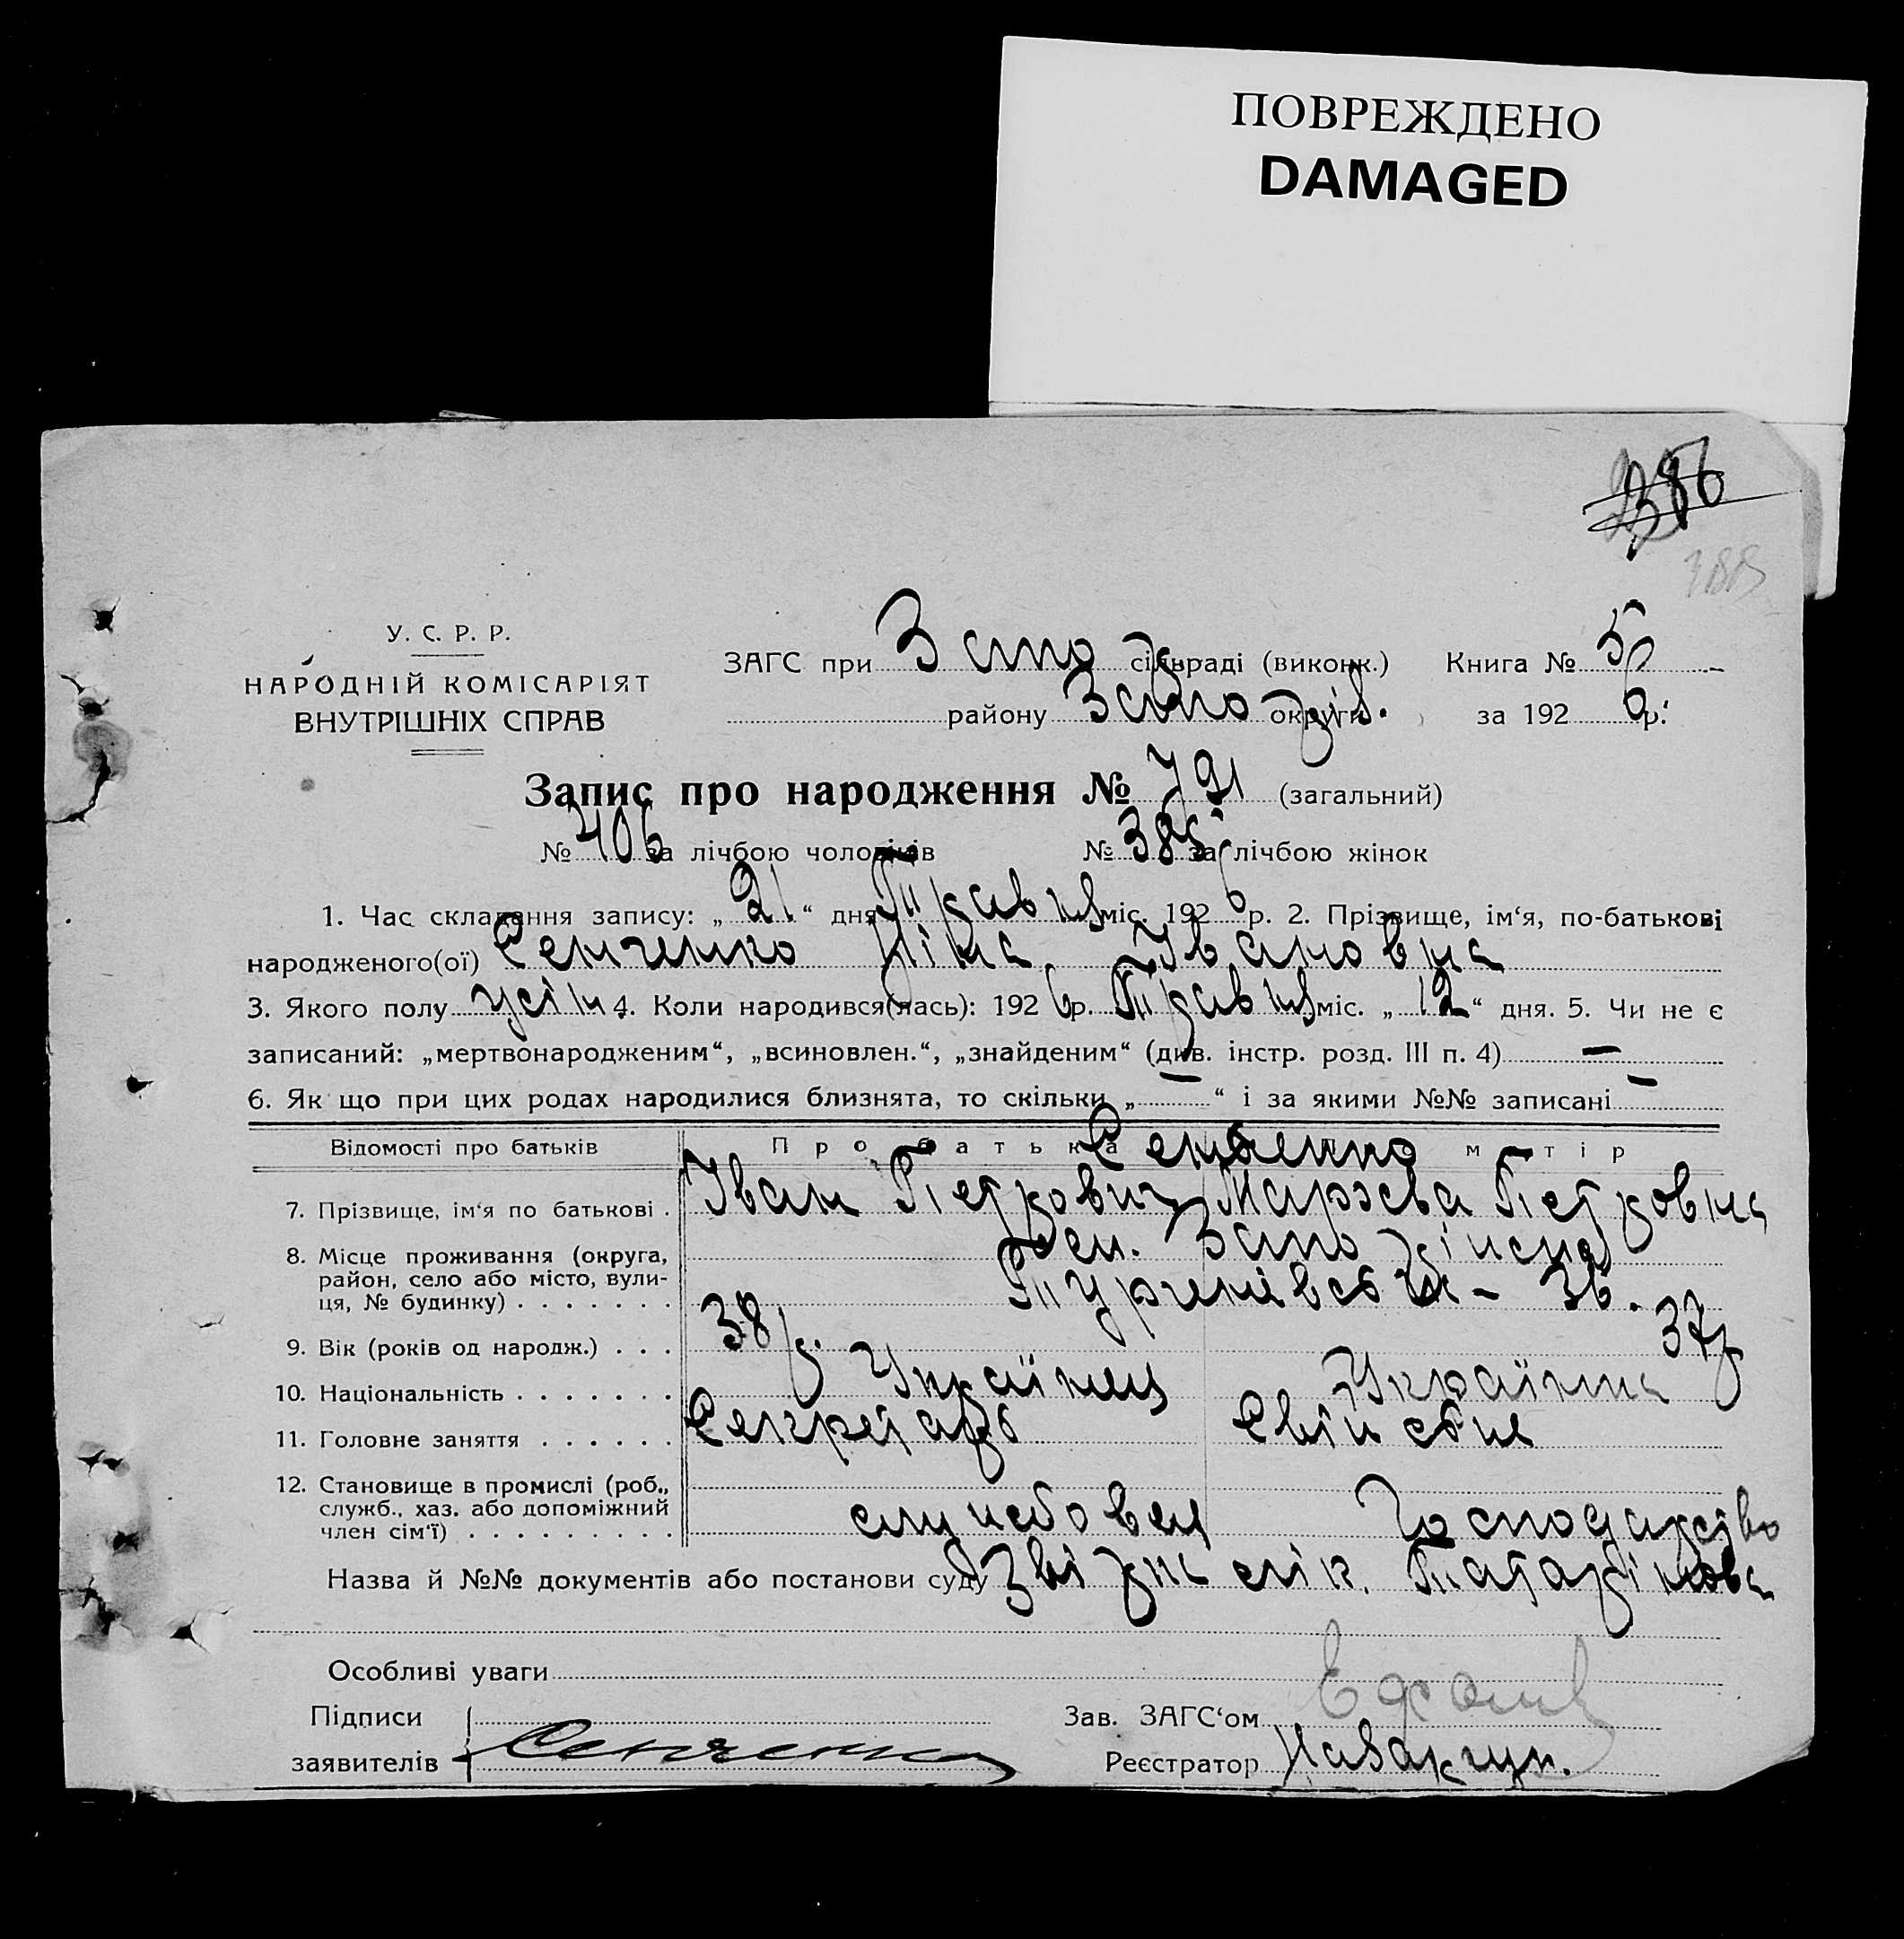 ПОВРЕЖДЕНО
DAMAGED
386
У. С. Р. Р.
НАРОДНІЙ КОМІСАРІЯТ
ВНУТРІШНІХ СПРАВ
ЗАГС при сільраді (виконк.) Книга № 5
району округи за 1926 р.
Запис про народження № 791 (загальний)
№ 406 за лічбою чоловіків № 385 за лічбою жінок
1. Час складання запису: „21“ дня Травня міс. 1926 р. 2. Прізвище, ім‘я, по-батькові
народженого(ої) Семченко Ніна Івановна
3. Якого полу жін 4. Коли народився(лась): 1926 р. Травня міс. „12“ дня. 5. Чи не є
записаний: „мертвонародженим“, „всиновлен.“, „знайденим“ (див. інстр. розд. III п. 4) —
6. Як що при цих родах народилися близнята, то скільки „—“ і за якими №№ записані —
Відомості про батьків Про батька Семченко матір
7. Прізвище, ім‘я по батькові . Іван Петрович Петровна
8. Місце проживання (округа,
район, село або місто, вули-
ця, № будинку) . . . . . . . 36.
9. Вік (років од народж.) . . . 38 р. 37 р
10. Національність . . . . . . . Українец Українка
11. Головне заняття . . . . . . Секретарь
12. Становище в промислі (роб.,
служб., хаз. або допоміжний
член сім‘ї) . . . . . . . . . службовец Господарство
Назва й №№ документів або постанови суду лік.
Особливі уваги
Підписи Зав. ЗАГС‘ом
заявителів Семченко Реєстратор